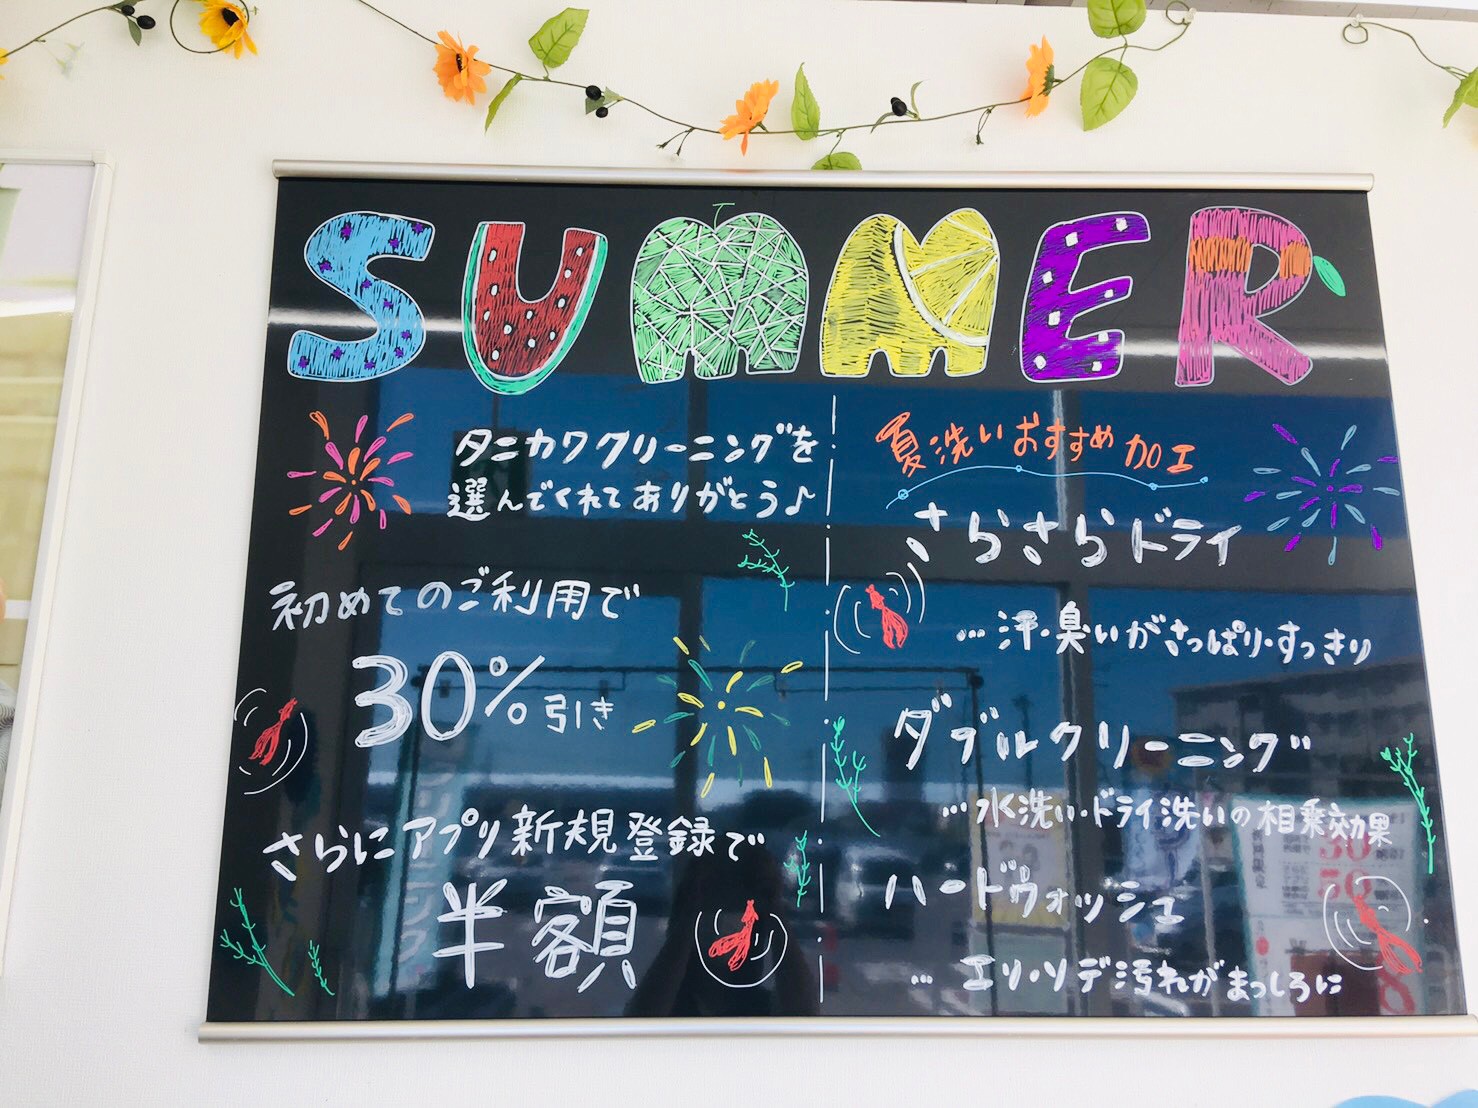 SUMMER
タニカワクリーニングを
選んでくれてありがとう♪
初めてのご利用で
30%引き
さらにアプリ新規登録で
半額
夏洗いおすすめ加工
さらさらドライ
…汗・臭いがさっぱり・すっきり
ダブルクリーニング
…水洗い・ドライ洗いの相乗効果
ハードウォッシュ
…エリ・ソデ汚れがまっしろに